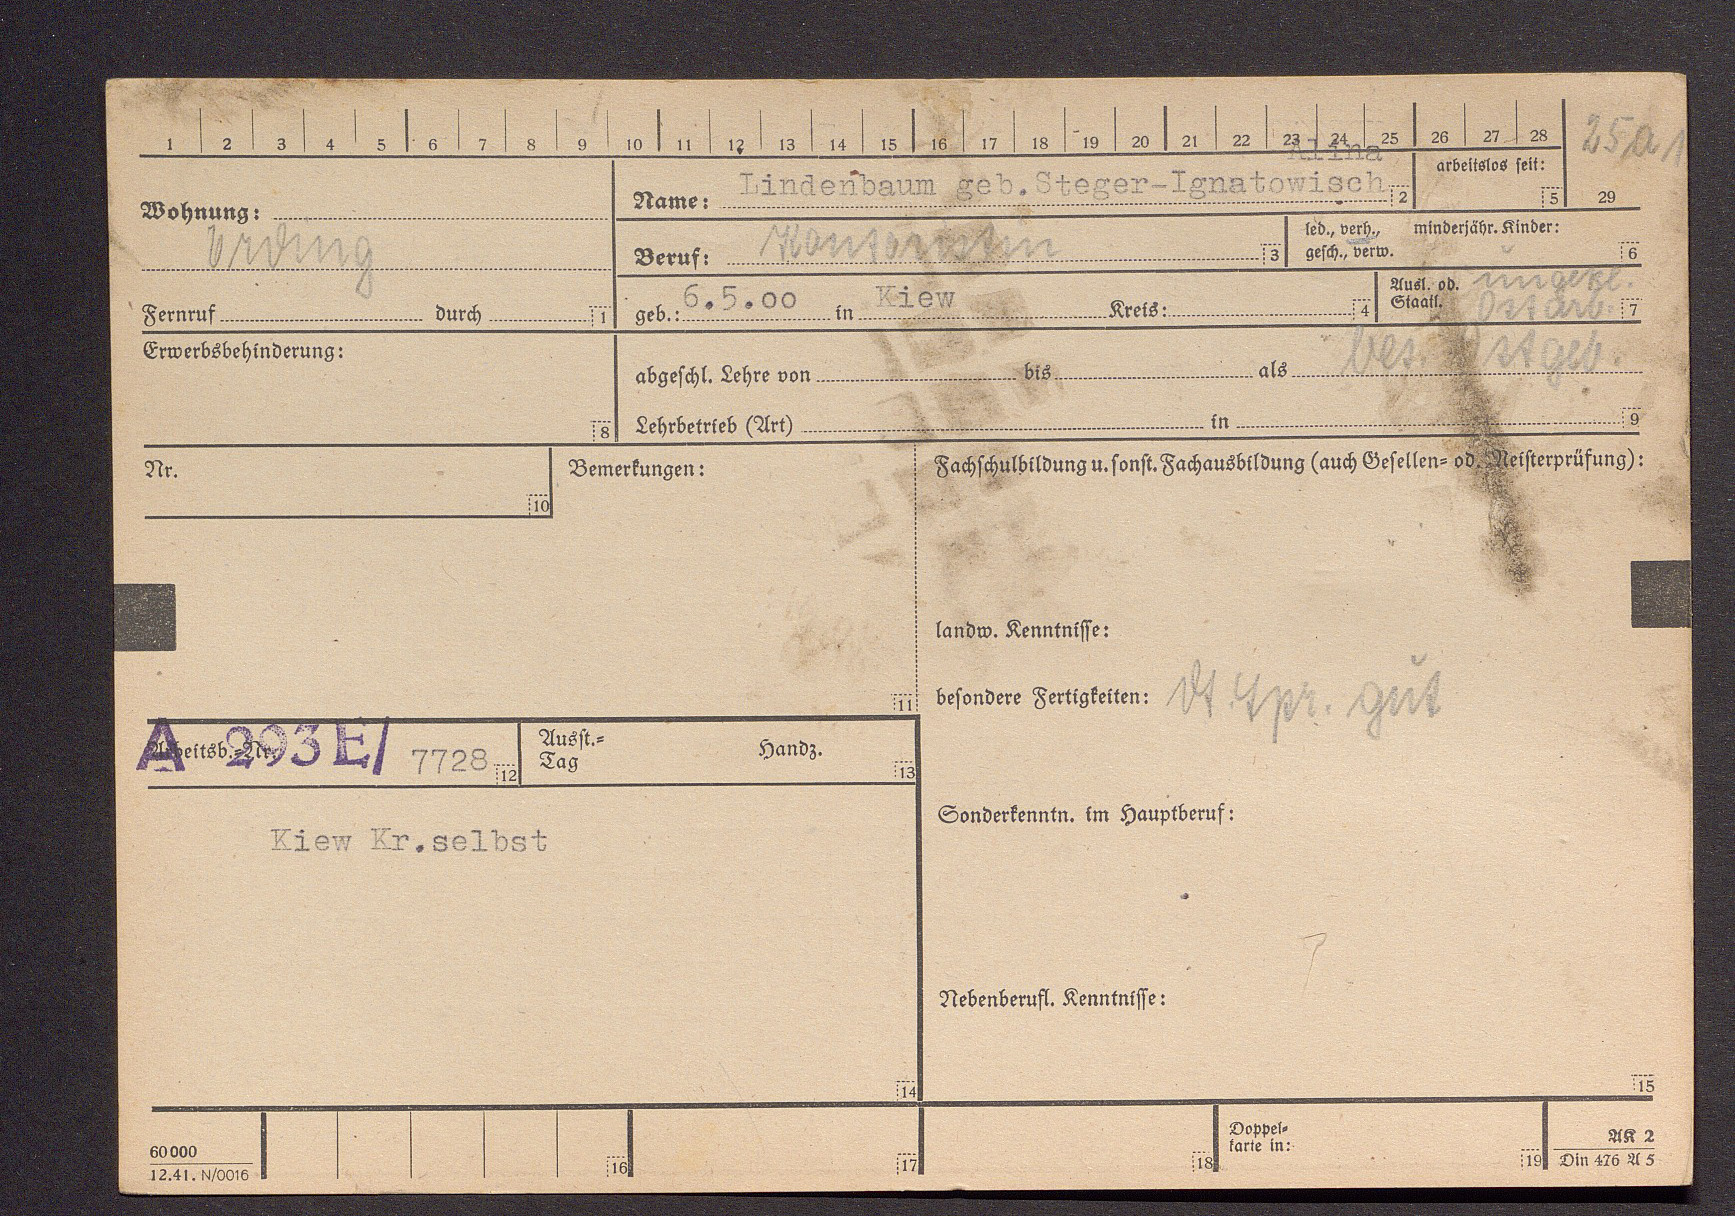 1 2 3 4 5 6 7 8 9 10 11 12 13 14 15 16 17 18 19 20 21 22 23 24 25 26 27 28 25a 1
Alina
arbeitslos seit:
Name: Lindenbaum geb. Steger-Ignatowisch 2 5 29
Wohnung:
Urding
Beruf: Kontoristin 3
led., verh., minderjähr. Kinder:
gesch., verw. 6
Fernruf durch 1
geb.: 6.5.00 in Kiew Kreis: 4
Ausl. od. ungekl.
Staatl. Ostarb. 7
bes. Ostgeb.
Erwerbsbehinderung:
8
abgeschl. Lehre von bis als
Lehrbetrieb (Art) in 9
Nr.
10
Bemerkungen:
11
Fachschulbildung u. sonst. Fachausbildung (auch Gesellen- od. Meisterprüfung):
landw. Kenntnisse:
besondere Fertigkeiten: dt. Spr. gut
Arbeitsb.-Nr. A 293E/ 7728 12
Ausst.-
Tag Handz. 13
Kiew Kr.selbst
14
Sonderkenntn. im Hauptberuf:
Nebenberufl. Kenntnisse:
15
60000
12.41. N/0016
16 17 18
Doppel-
karte in: 19
AK 2
Din 476 A 5